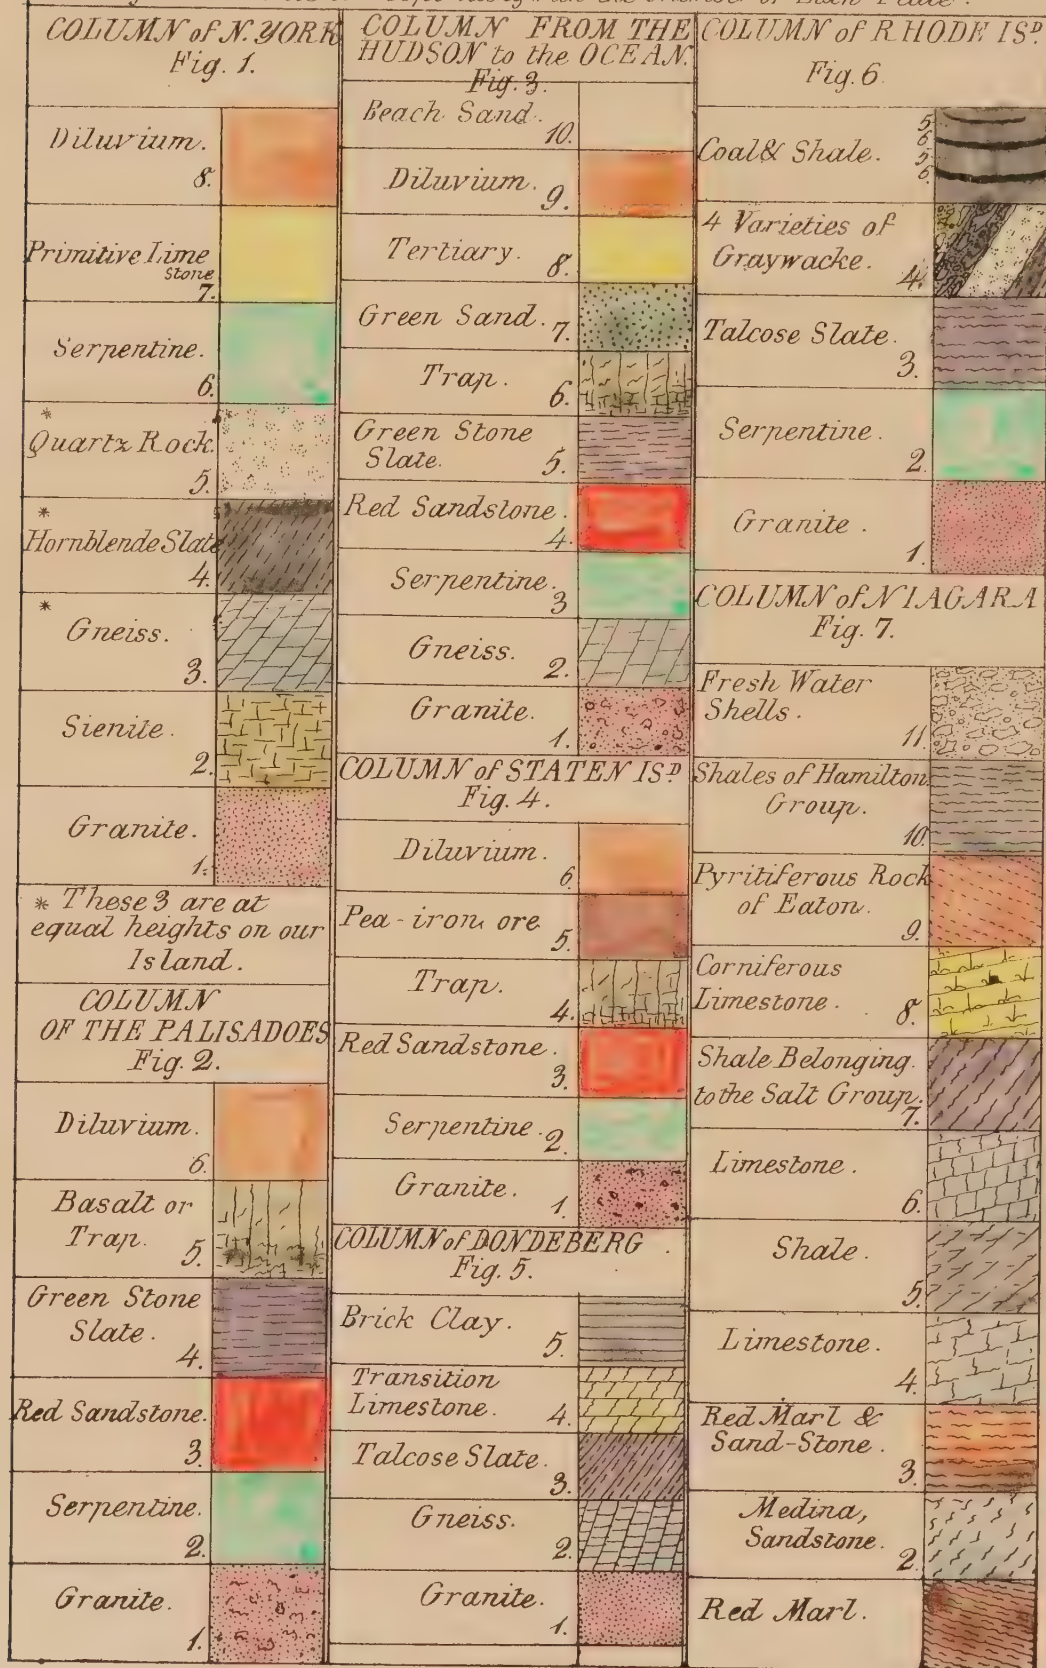 COLUMN of N. YORK
Fig. 1.
Diluvium.
8.
Primitive Lime
Stone
7.
Serpentine.
6.
*
Quartz Rock.
5.
*
Hornblende Slate
4.
*
Gneiss.
3.
Sienite.
2.
Granite.
1.
* These 3 are at
equal heights on our
Island.
COLUMN
OF THE PALISADOES
Fig. 2.
Diluvium.
6.
Basalt or
Trap.
5.
Green Stone
Slate.
4.
Red Sandstone.
3.
Serpentine.
2.
Granite.
1.
COLUMN FROM THE
HUDSON to the OCEAN.
Fig. 3.
Beach Sand.
10.
Diluvium.
9.
Tertiary.
8.
Green Sand.
7.
Trap.
6.
Green Stone
Slate.
5.
Red Sandstone.
4.
Serpentine.
3
Gneiss.
2.
Granite.
1.
COLUMN of STATEN ISD
Fig. 4.
Diluvium.
6.
Pea-iron ore
5.
Trap.
4.
Red Sandstone.
3.
Serpentine.
2.
Granite.
1.
COLUMN of DONDEBERG.
Fig. 5.
Brick Clay.
5.
Transition
Limestone.
4.
Talcose Slate.
3.
Gneiss.
2.
Granite.
1.
COLUMN of RHODE ISD
Fig. 6.
Coal & Shale.
5
6
5
6.
4 Varieties of
Graywacke.
4.
Talcose Slate.
3.
Serpentine.
2.
Granite.
1.
COLUMN of NIAGARA
Fig. 7.
Fresh Water
Shells.
11.
Shales of Hamilton
Group.
10.
Pyritiferous Rock
of Eaton.
9.
Corniferous
Limestone.
8.
Shale Belonging
to the Salt Group.
7.
Limestone.
6.
Shale.
5.
Limestone.
4.
Red Marl &
Sand-Stone.
3.
Medina,
Sandstone.
2.
Red Marl.